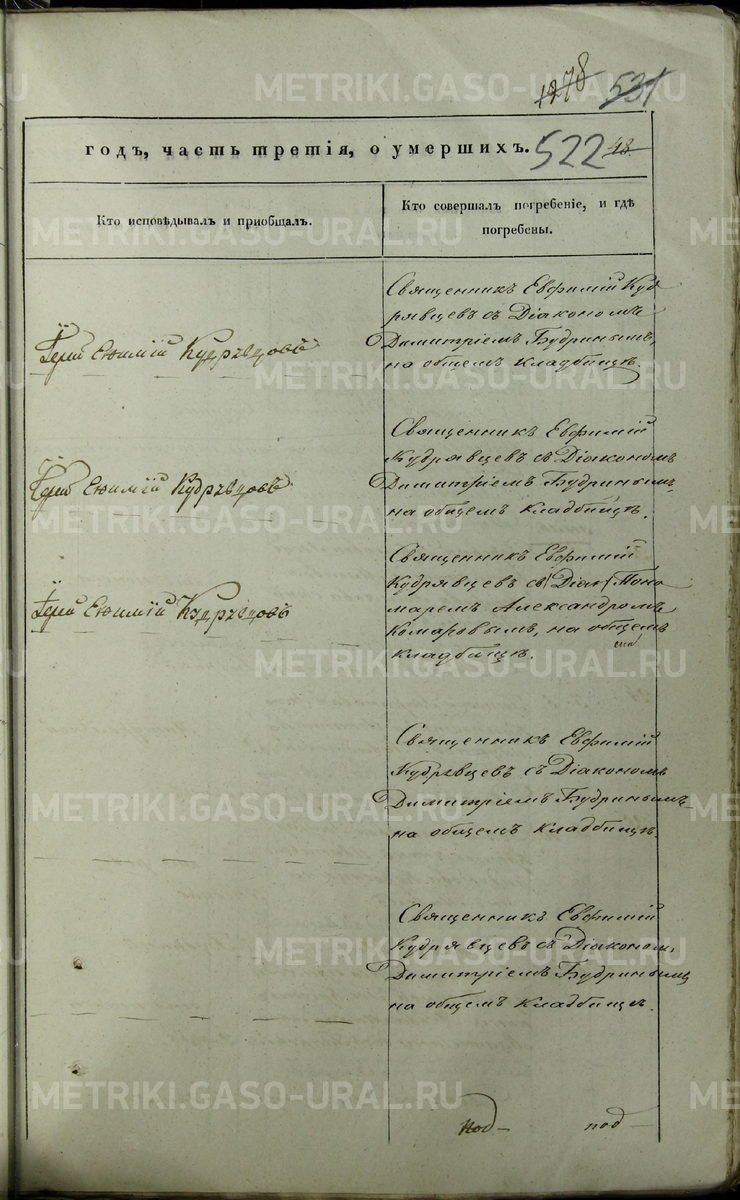 1278 531
годъ, часть третія, о умершихъ. 522 48
Кто исповѣдывалъ и приобщалъ.
Кто совершалъ погребеніе, и гдѣ
погребены.
Священникъ Евфимій Куд
рявцевъ съ Діакономъ
Димитріемъ Будринымъ,
на общемъ кладбищѣ.
Іерей Евѳимій Кудрявцовъ
Священникъ Евфимій
Кудрявцевъ съ Діакономъ
Димитріемъ Будринымъ,
на общемъ кладбищѣ.
Іерей Евѳимій Кудрявцовъ
Священникъ Евфимій
Кудрявцевъ съ Діак Поно
маремъ Александромъ
Комаровымъ, на общемъ
кладбищѣ.
Іерей Евѳимій Кудрявцовъ
Священникъ Евфимій
Кудрявцевъ съ Діакономъ
Димитріемъ Будринымъ
на общемъ кладбищѣ.
Священникъ Евфимій
Кудрявцевъ съ Діаконом,
Димитріемъ Будринымъ
на общемъ кладбищѣ.
под
METRIKI.GASO-URAL.RU